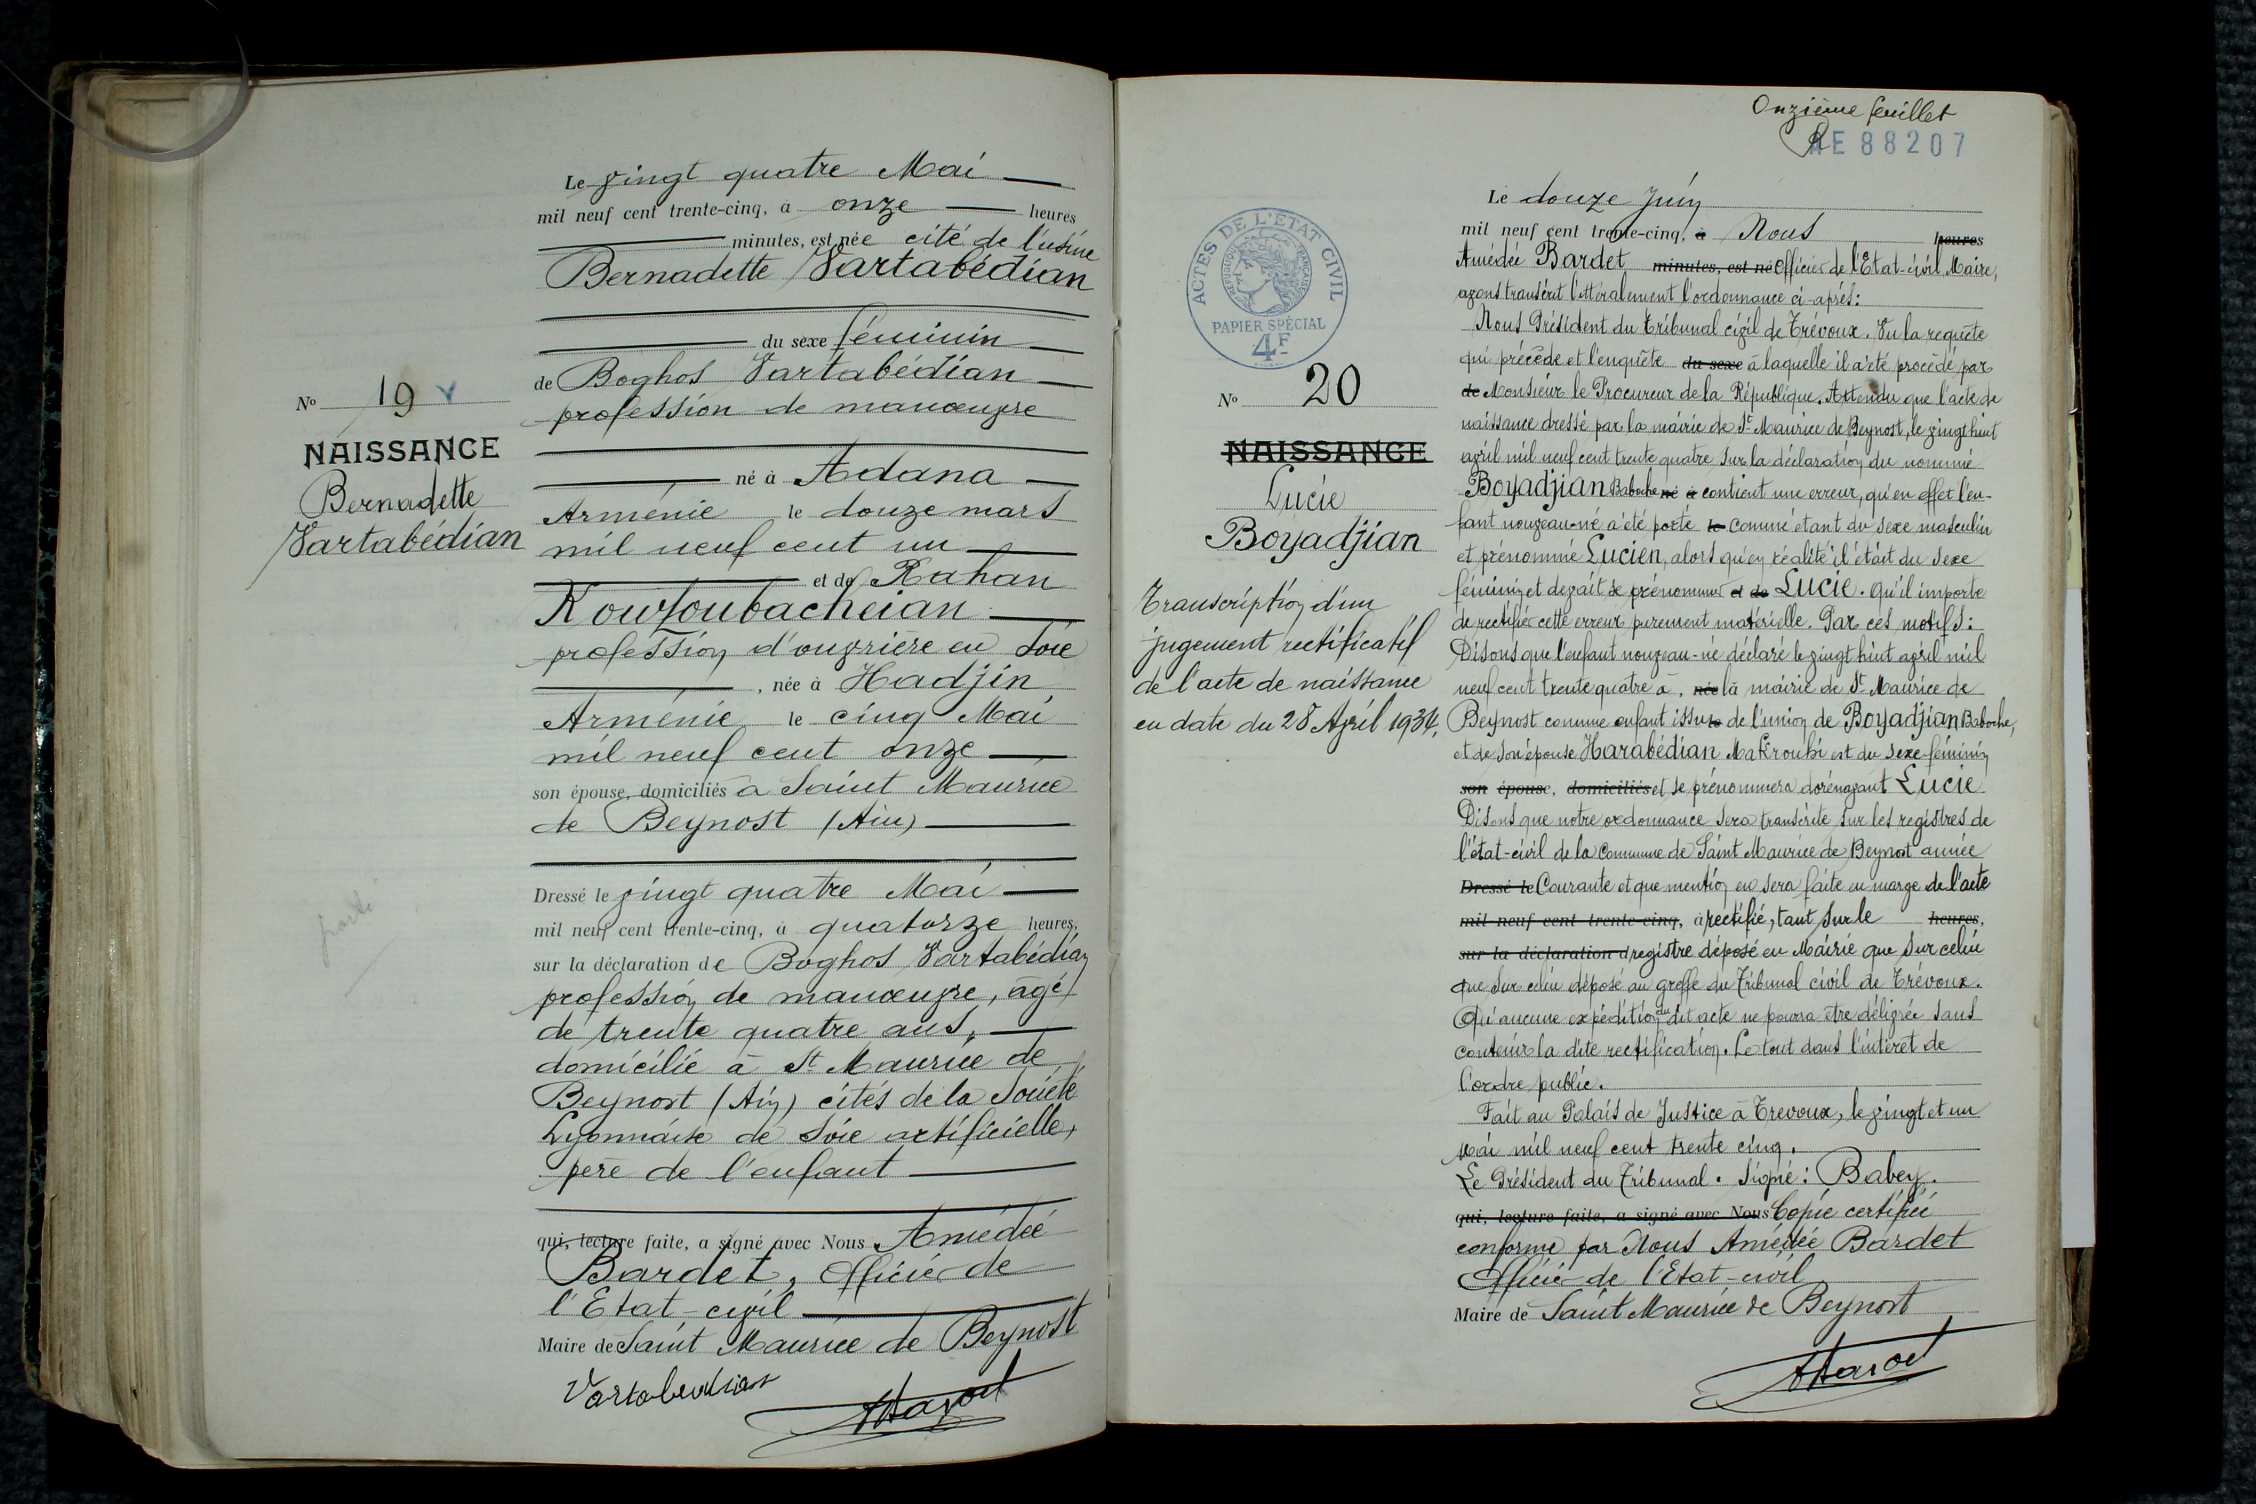 Le vingt quatre Mai
mil neuf cent trente-cinq, à onze heures
minutes, est née cité de l'usine
Bernadette Vartabédian
du sexe féminin
de Boghos Vartabédian
profession de manœuvre
né à Adana
Arménie le douze mars
mil neuf cent un
et de Rahan
Kouyoubacheian
profession d'ouvrière en soie
, née à Hadjin
Arménie le cinq Mai
mil neuf cent onze
son épouse, domiciliés à Saint Maurice
de Beynost (Ain)
Dressé le vingt quatre Mai
mil neuf cent trente-cinq, à quatorze heures,
sur la déclaration de Boghos Vartabédian
profession de manœuvre, âgé
de trente quatre ans,
domicilié à St Maurice de
Beynost (Ain) cités de la Société
Lyonnaise de soie artificielle,
père de l'enfant
qui, lecture faite, a signé avec Nous Amédée
Bardet, Officier de
l'Etat-civil
Maire de Saint Maurice de Beynost
Vartabedian
No 19
NAISSANCE
Bernadette
Vartabédian
Onzième feuillet
AE 88207
ACTES DE L'ETAT CIVIL
REPUBLIQUE FRANÇAISE
PAPIER SPÉCIAL
4F
No 20
NAISSANCE
Lucie
Boyadjian
Transcription d'un
jugement rectificatif
de l'acte de naissance
en date du 28 Avril 1934.
Le douze Juin
mil neuf cent trente-cinq, à Nous heures
Amédée Bardet minutes, est né Officier de l'Etat-civil, Maire,
avons transcrit littéralement l'ordonnance ci-après:
Nous Président du Tribunal civil de Trévoux. Vu la requête
qui précède et l'enquête du sexe à laquelle il a été procédé par
de Monsieur le Procureur de la République. Attendu que l'acte de
naissance dressé par la mairie de St Maurice de Beynost, le vingt huit
avril mil neuf cent trente quatre sur la déclaration du nommé
Boyadjian Baboche né à contient une erreur, qu'en effet l'en-
fant nouveau-né a été porté le comme étant du sexe masculin
et prénommé Lucien, alors qu'en réalité il était du sexe
féminin et devait se prénommer et de Lucie. Qu'il importe
de rectifier cette erreur purement matérielle. Par ces motifs:
Disons que l'enfant nouveau-né déclaré le vingt huit avril mil
neuf cent trente quatre à, née la mairie de St Maurice de
Beynost comme enfant issu le de l'union de Boyadjian Baboche,
et de son épouse Harabédian Makrouhi est du sexe féminin
son épouse, domiciliés et se prénommera dorénavant Lucie
Disons que notre ordonnance sera transcrite sur les registres de
l'état-civil de la Commune de Saint Maurice de Beynost année
Dressé le Courante et que mention en sera faite en marge de l'acte
mil neuf cent trente-cinq, à rectifié, tant sur le heures,
sur la déclaration d registre déposé en Mairie que sur celui
que sur celui déposé au greffe du Tribunal civil de Trévoux.
Qu'aucune expédition du dit acte ne pourra être délivrée sans
contenir la dite rectification. Le tout dans l'intérêt de
l'ordre public.
Fait au Palais de Justice à Trevoux, le vingt et un
Mai mil neuf cent trente cinq.
Le Président du Tribunal. Signé: Babey.
qui, lecture faite, a signé avec Nous Copie certifiée
conforme par Nous Amédée Bardet
Officier de l'Etat-civil
Maire de Saint Maurice de Beynost